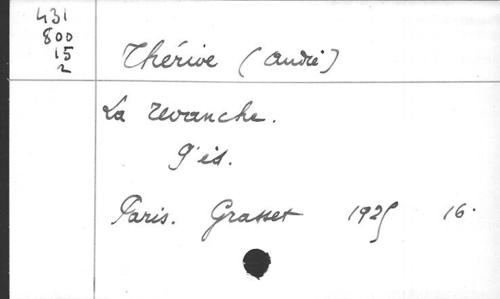 431
800
15
2
Thérive (André)
La revanche.
9'éd.
Paris. Grasset 1925 16.